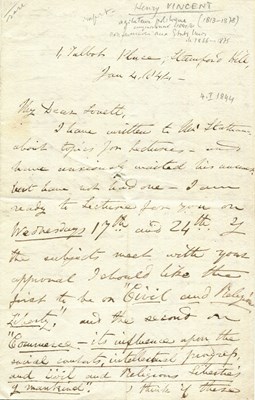 Henry VINCENT
(1813-1878)
4, Talbot Place, Stamford Hill,
Jan 4, 1844 -
4-I 1844
My Dear Lovett,
I have written to Mr
about topics for lectures - and
have answer
but have not had one - I am
ready to lecture for you on
Wednesdays 17th and 24th If
the subjects meet with your
approval I should like the
first to be on "Civil and Religious
Liberty", and the second on
"Commerce - its influence upon the
social comforts, intellectual progress,
and Civil and Religious Liberties
of mankind". I think if these